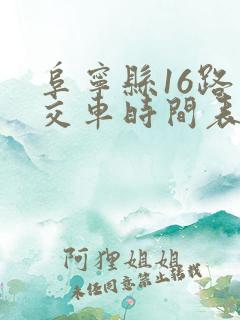 阜寧縣16路
交車時間表
阿狸姐姐
未经同意禁止转载